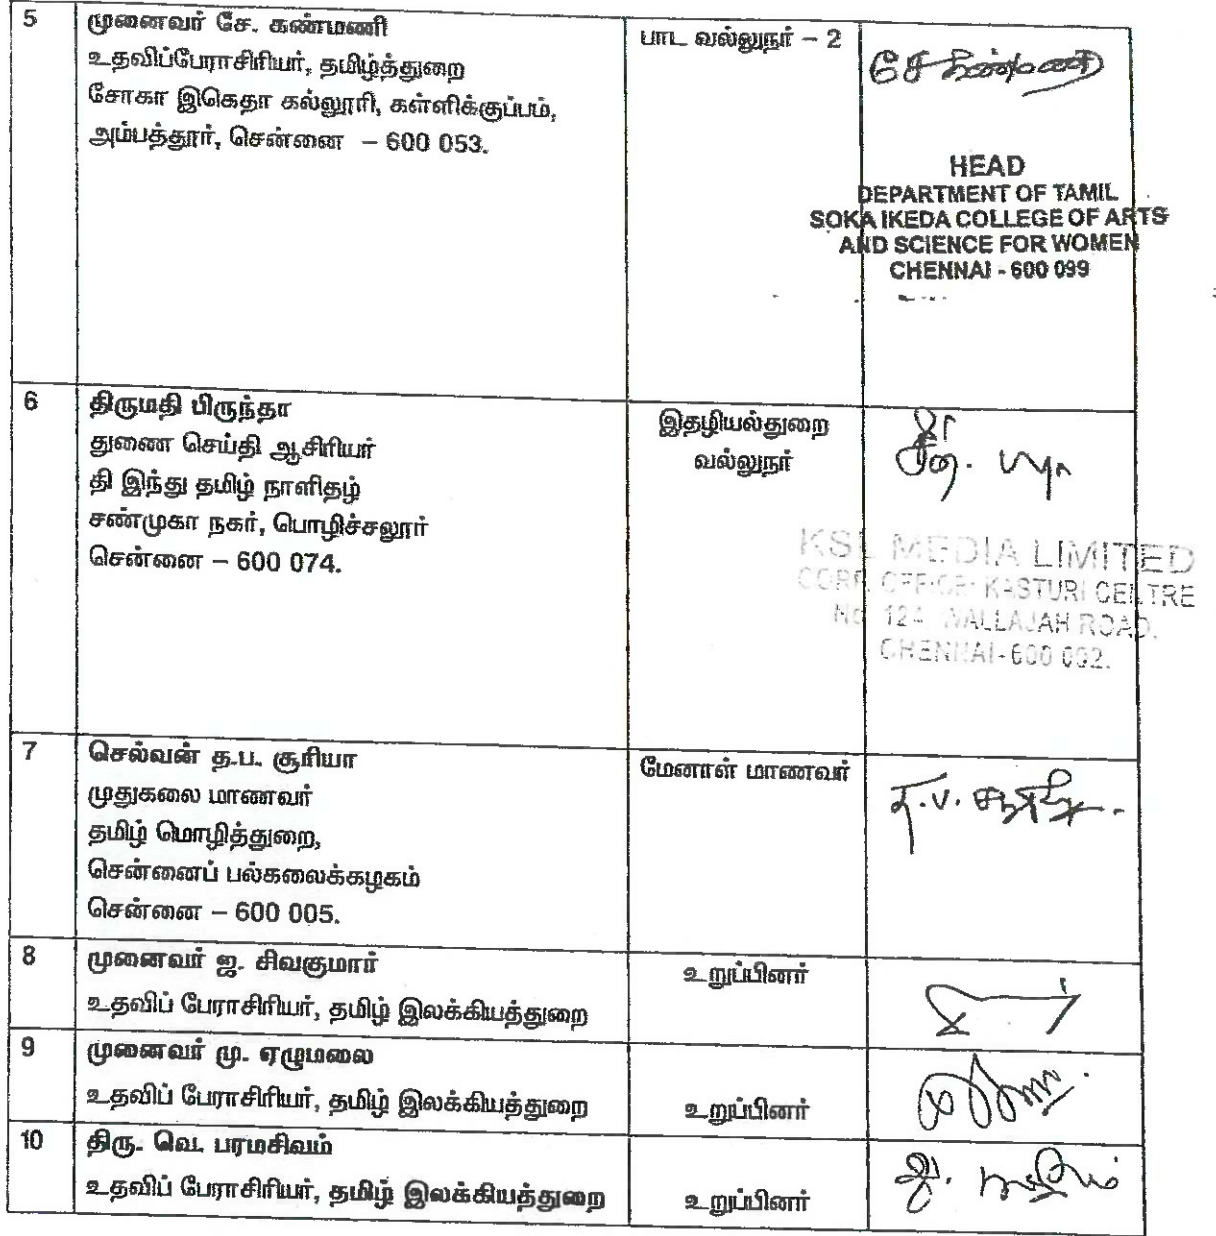 5
முனைவர் சே. கண்மணி
உதவிப்பேராசிரியர், தமிழ்த்துறை
சோகா இகெதா கல்லூரி, கள்ளிக்குப்பம்,
அம்பத்தூர், சென்னை – 600 053.
பாட வல்லுநர் – 2
சே கண்மணி
HEAD
DEPARTMENT OF TAMIL
SOKA IKEDA COLLEGE OF ARTS
AND SCIENCE FOR WOMEN
CHENNAI - 600 099
6
திருமதி பிருந்தா
துணை செய்தி ஆசிரியர்
தி இந்து தமிழ் நாளிதழ்
சண்முகா நகர், பொழிச்சலூர்
சென்னை – 600 074.
இதழியல்துறை
வல்லுநர்
KSL MEDIA LIMITED
CORP. OFFICE: KASTURI CENTRE
No. 124, WALLAJAH ROAD,
CHENNAI-600 002.
7
செல்வன் த.ப. சூரியா
முதுகலை மாணவர்
தமிழ் மொழித்துறை,
சென்னைப் பல்கலைக்கழகம்
சென்னை – 600 005.
மேனாள் மாணவர்
த.ப.
8
முனைவர் ஐ. சிவகுமார்
உதவிப் பேராசிரியர், தமிழ் இலக்கியத்துறை
உறுப்பினர்
9
முனைவர் மு. ஏழுமலை
உதவிப் பேராசிரியர், தமிழ் இலக்கியத்துறை
உறுப்பினர்
10
திரு. வெ. பரமசிவம்
உதவிப் பேராசிரியர், தமிழ் இலக்கியத்துறை
உறுப்பினர்